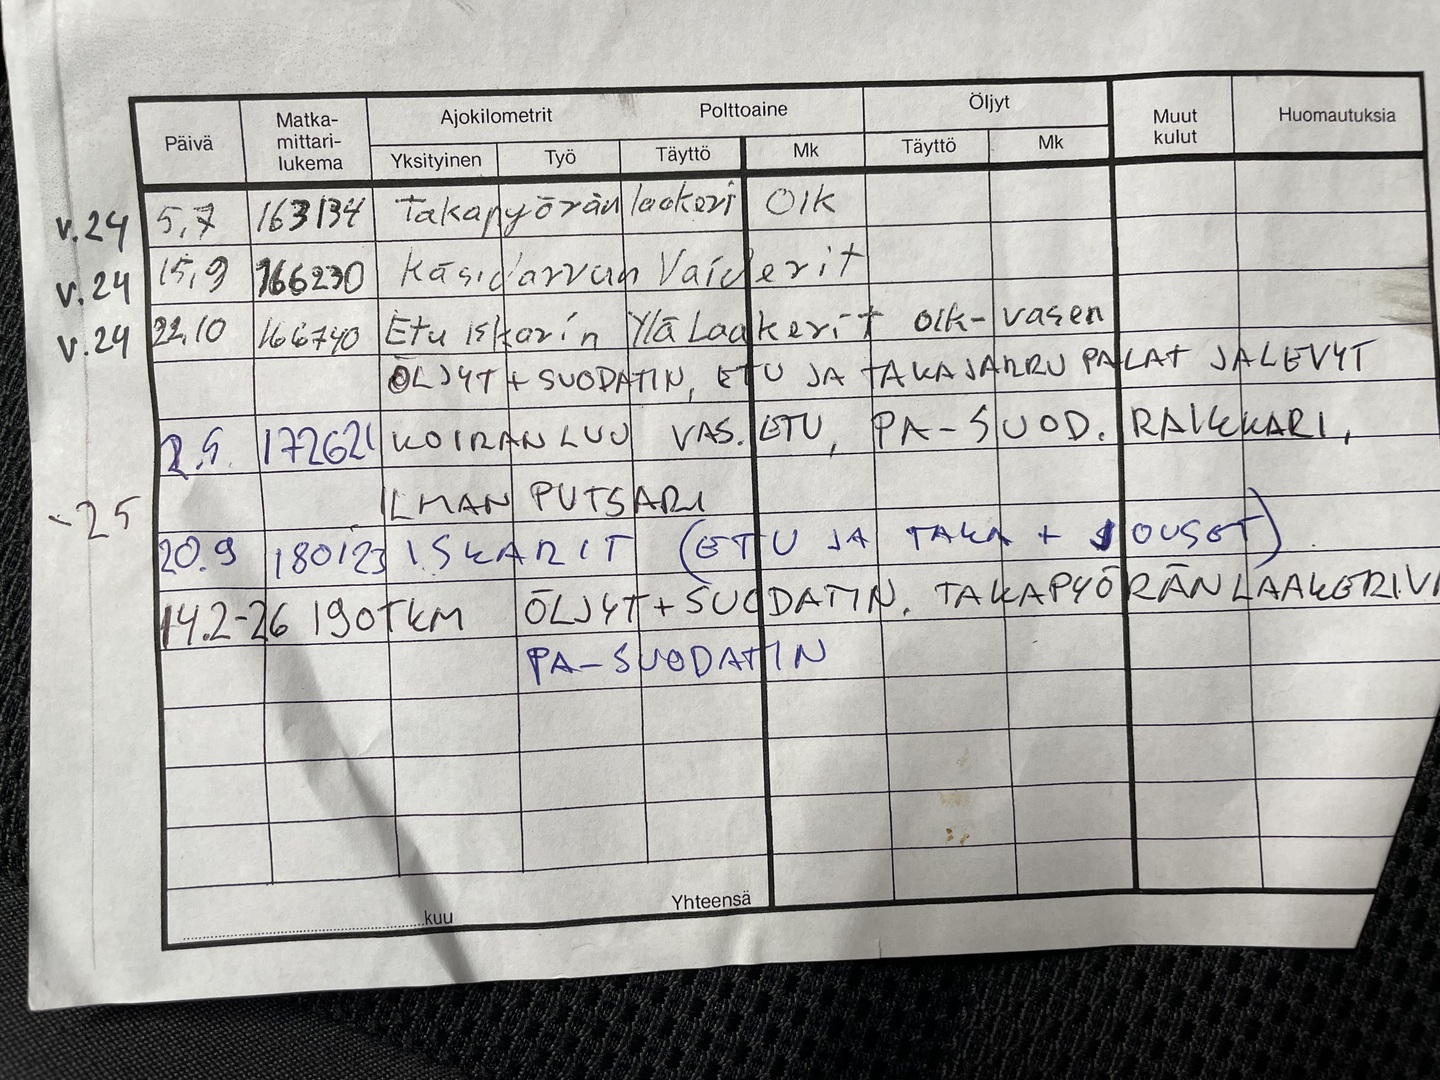 Päivä Matka- mittari- lukema Ajokilometrit Polttoaine Öljyt Muut kulut Huomautuksia
Yksityinen Työ Täyttö Mk Täyttö Mk
v.24 5,7 163134 Takapyörän laakeri Oik
v.24 15,9 166230 Käsijarrun Vaijerit
v.24 22,10 166740 Etu iskarin Ylä Laakerit oik-vasen
ÖLJYT + SUODATIN, ETU JA TAKAJARRU PALAT JA LEVYT
2.5. 172621 KOIRANLUU VAS. ETU, PA-SUOD. RAIKKARI,
-25 ILMAN PUTSARI
20.9 180123 ISKARIT (ETU JA TAKA + JOUSET)
14.2-26 190TKM ÖLJYT + SUODATIN. TAKAPYÖRÄN LAAKERI
PA-SUODATIN
kuu Yhteensä